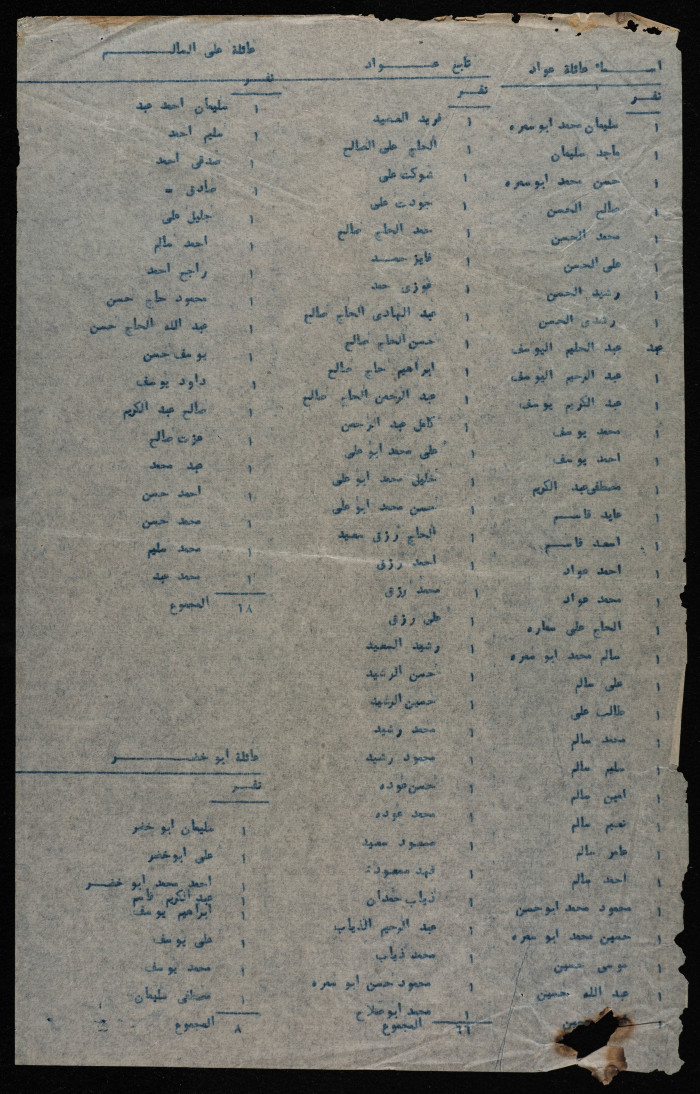 اسماء عائلة عواد
نفر
١ سليمان محمد ابو سعره
١ ماجد سليمان
١ حسن محمد ابو سعره
١ صالح الحسن
١ محمد الحسن
١ على الحسن
١ رشيد الحسن
١ رشدى الحسن
عبد عبد الحليم اليوسف
١ عبد الرحيم اليوسف
١ عبد الكريم يوسف
١ محمد يوسف
١ احمد يوسف
١ مصطفى عبد الكريم
١ عايد قاسم
١ اسعد قاسم
١ احمد عواد
١ محمد عواد
١ الحاج على سعاره
١ سالم محمد ابو سعره
١ على سالم
١ طالب على
١ محمد سالم
١ سليم سالم
١ امين سالم
١ نعيم سالم
١ عامر سالم
١ احمد سالم
١ محمود محمد ابو حسن
١ حسين محمد ابو سعره
١ موسى حسين
١ عبد الله حسين
١
تابع عواد
نفر
١ فريد السعيد
١ الحاج على الصالح
١ شوكت على
١ جودت على
١ حمد الحاج صالح
١ فايز حمد
١ فوزى حمد
١ عبد الهادى الحاج صالح
١ حسن الحاج صالح
١ ابراهيم حاج صالح
١ عبد الرحمن الحاج صالح
١ كامل عبد الرحمن
١ على محمد ابو على
١ خليل محمد ابو على
١ حسن محمد ابو على
١ الحاج رزق سعيد
١ احمد رزق
١ محمد رزق
١ على رزق
١ رشيد السعيد
١ حسن الرشيد
١ حسين الرشيد
١ محمد رشيد
١ محمود رشيد
١ حسن عوده
١ محمد عوده
١ مسعود سعيد
١ فهد مسعود
١ ذياب حمدان
١ عبد الرحيم الذياب
١ محمد ذياب
١ محمود حسن ابو سعره
١ محمد ابو صلاح
٦٦ المجموع
عائلة على السالم
نفر
١ سليمان احمد عبد
١ سليم احمد
١ صدقى احمد
١ صادق =
١ جليل على
١ احمد سالم
١ راجح احمد
١ محمود حاج حسن
١ عبد الله الحاج حسن
١ يوسف حسن
١ داود يوسف
١ صالح عبد الكريم
١ عزت صالح
١ عبد محمد
١ احمد حسن
١ محمد حسن
١ محمد سليم
١ محمد عبد
١٨ المجموع
عائلة ابو خضر
نفر
١ سليمان ابو خضر
١ على ابو خضر
١ احمد محمد ابو خضر
١ عبد الكريم قاسم
١ ابراهيم يوسف
١ على يوسف
١ محمد يوسف
١ مصطفى سليمان
٨ المجموع